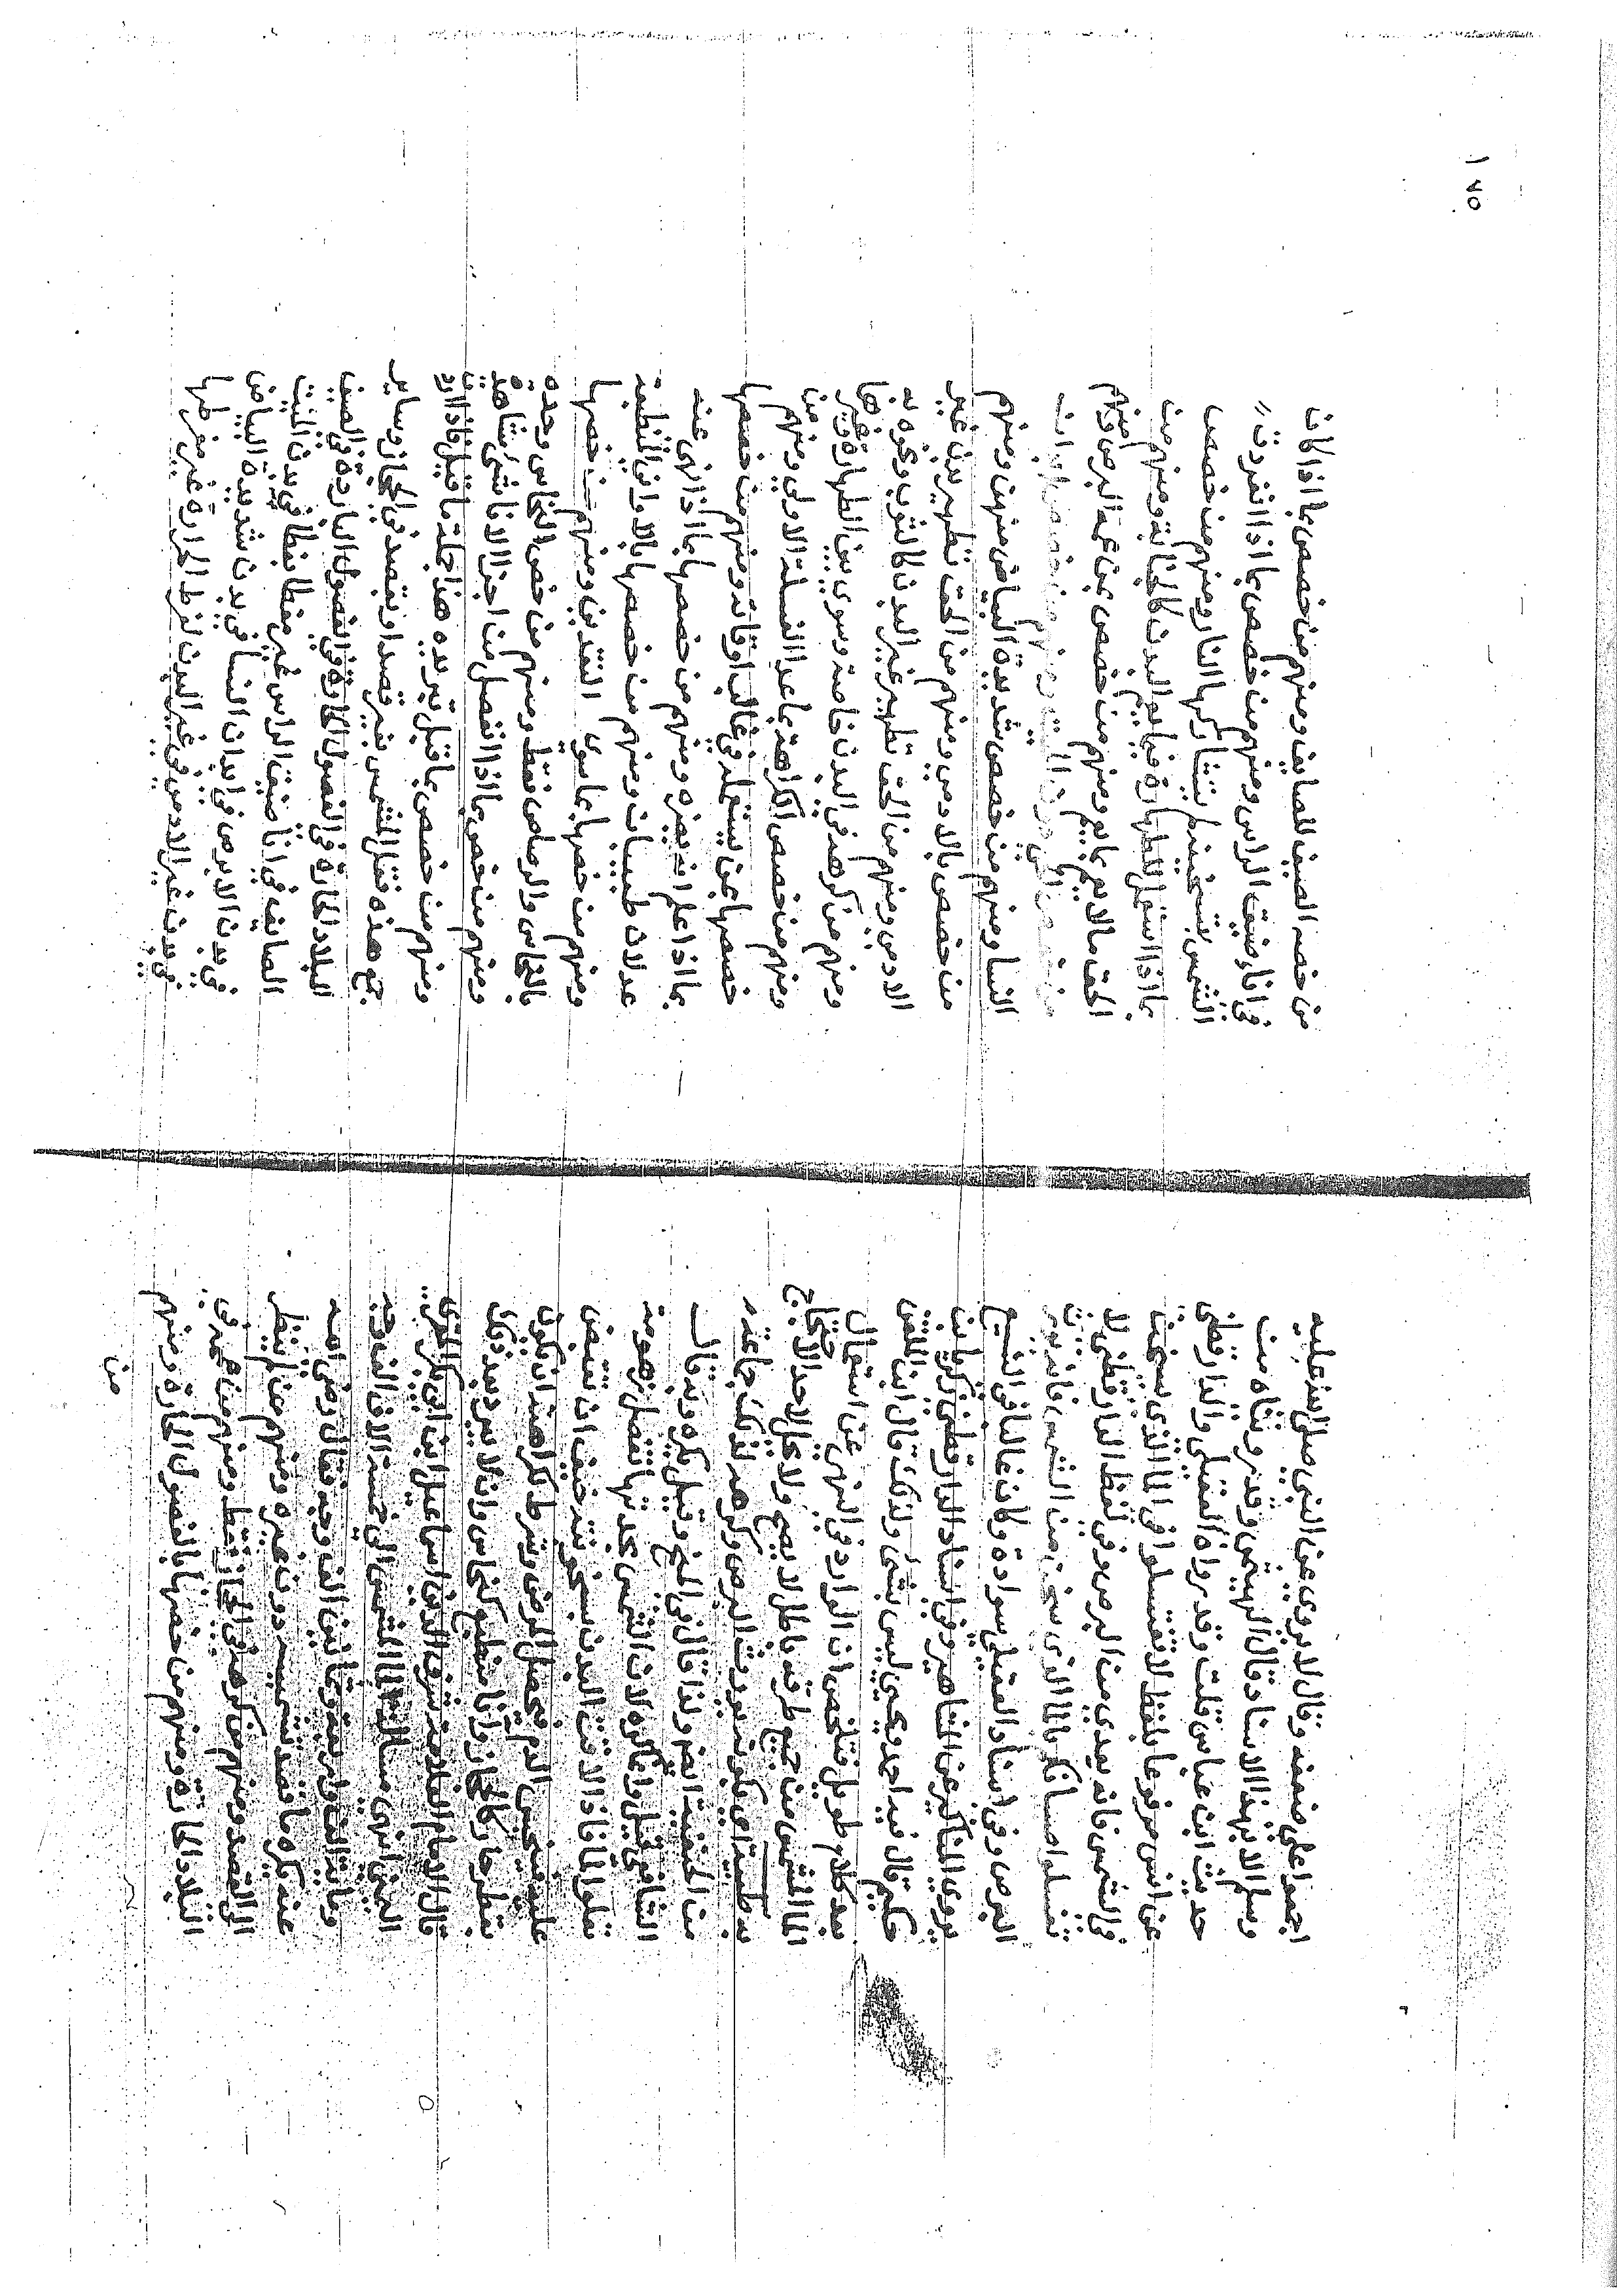 اجمعوا على ضعفه وقال لا يروى عن النبي صلى الله عليه
وسلم الا بهذا الاسناد وقال البيهقي وقد رويناه من
حديث ابن عباس قلت وقد رواه العقيلي والدارقطني
عن انس مرفوعا بلفظ لا تغتسلوا في الماء الذي يسخن
في الشمس فانه يعدي من البرص وفي لفظ الدارقطني لا
تغسلوا صبيانكم بالماء الذي سخن من الشمس فانه يورث
البرص وفي اسناد العقيلي سوادة وكان غالبا في التشيع
يروي المناكير عن المشاهير وفي اسناد الدارقطني زكريا بن
حكيم قال فيه احمد ويحيى ليس بشي ولذلك قال ابن الملقن
بعد كلام طويل فتلخص ان الوارد في النهي عن استعمال
الماء المشمس من جميع طرقه باطل لا يصح ولا يحل لاحد الاحتجاج
به طبيا اي بكونه يورث البرص وكرهه لذلك جماعة
من الحنفية ايضا ولذا قال في المنح وقيل يكره وبه قال
الشافعي قيل وانما كره لان الشمس بحدتها تفصل زهومة
تعلو الماء فاذا لاقت البدن بسخونته خيف ان تقبض
عليه فينحبس الدم فيحصل المرض وشرط كراهته ان يكون
بقطر حار كالحجاز واناء منطبع كنحاس وان لا يبرد بعد ذلك
قال الامام العلامة شرف الدين اسماعيل ابن ابي بكر المقري
اليمني انتهى الماء المشمس الى خمسة الاف الف وجه
وماية الف واربعة وثمانين الف وجه فقال رضي الله
عنه يكره ما قصد تشميسه دون غيره ومنهم من لم ينظر
الى القصد ومنهم من كرهه في الحجاز فقط ومنهم من عمم في
البلاد الحارة ومنهم من خصها بالفصول الحارة ومنهم
من
١٧٥
من خصه الصيف للصايف ومنهم من خصص بما اذا كان
في اناء ضيق الراس ومنهم من خصص بما اذا انفردت
الشمس بتسخينه لم يشاركها النار ومنهم من خصص
بما اذا استعمل للطهارة فيما يعم البدن كالجنابة ومنهم من
الحق مالا يعم بما يعم ومنهم من خصص بمن عمه البرص ومنهم
من خصص
النساء ومنهم من خصص شديدة البياض منهن ومنهم
من خصص بالادمي ومنهم من الحق تطهير بدن غير
الادمي ومنهم من الحق تطهير غير البدن كالثوب ونحوه به
ومنهم من كرهه في البدن خاصة وسوى بين الطهارة وغيرها
ومنهم من خصص الكراهة بما عدا الغسلة الاولى ومنهم من
خصصها بمن يستعمله في غالب اوقاته ومنهم من خصصها
بما اذا علم انه يضره ومنهم من خصصها بما اذا نهى عنه
عدلان طبيبان ومنهم من خصصها بالاواني المنطبعة
ومنهم من خصها بما سوى النقدين ومنهم من خصها
بالنحاس والرصاص فقط ومنهم من خص النحاس وحده
ومنهم من خص بما اذا انفصل من اجزا الاناء شيء يشاهد
ومنهم من خصص بما قبل تبريده هذا جملة ما قيل فاذا اردت
جمع هذه فقل الشمس بغير قصد او بقصد في الحجاز وساير
البلاد الحارة في الفصول الحارة وفي الفصول الباردة في الصيف
الصايف في اناء ضيق الراس غير مغطا بغطا في بدن الميت
في بدن الابرص في ابدان النساء في بدن شديدة البياض
في بدن غير الادمي في غير البدن لفرط الحرارة غير مفرطها